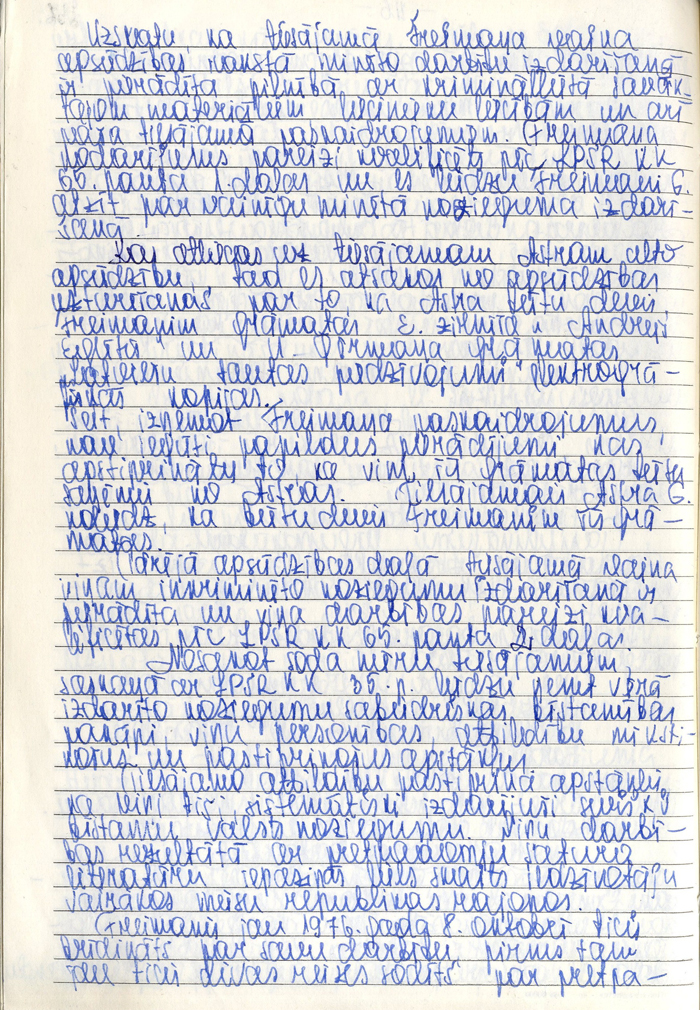 Uzskatu, ka tiesājamā Freimaņa vaina
apsūdzības rakstā minēto darbību izdarīšanā
ir pierādīta pilnībā ar krimināllietā savāk-
tajiem materiāliem liecinieku liecībām un arī
paša tiesājamā paskaidrojumiem. Freimaņa
nodarījums pareizi kvalificēts pēc LPSR KK
65. panta 1. daļas un es lūdzu Freimani G.
atzīt par vainīgu minētā nozieguma izdarī-
šanā.
Kas attiecas uz tiesājamam Astram celto
apsūdzību, tad es atsakos no apsūdzības
uzturēšanas par to, ka Astra būtu devis
Freimanim grāmatas E. "Andrejs
Eglītis" un U. Ģērmaņa grāmatas
"Latviešu tautas piedzīvojumi" elektrogrā-
fiskās kopijas.
Šeit, izņemot Freimaņa paskaidrojumus,
nav iegūti papildus pierādījumi kas
apstiprinātu to, ka viņš šīs grāmatas būtu
saņēmis no Astras. Tiesājamais Astra G.
noliedz, ka būtu devis Freimanim šīs grā-
matas.
Pārējā apsūdzības daļā tiesājamā vaina
viņam inkriminēto noziegumu izdarīšanā ir
pierādīta un viņa darbības pareizi kva-
lificētas pēc LPSR KK 65. panta 2. daļas.
Nosakot soda mēru tiesājamiem,
saskaņā ar LPSR KK 35. p. lūdzu ņemt vērā
izdarīto noziegumu sabiedriskās bīstamības
pakāpi viņu personības, atbildību mīksti-
nošus un pastiprinošus apstākļus.
Tiesājamo atbildību pastiprina apstāklis,
ka viņi tīši sistemātiski izdarījuši sevišķi
bīstamu valsts noziegumu. Viņu darbī-
bas rezultātā ar pretpadomju satura
literatūru iepazinās liels skaits iedzīvotāju
vairākos mūsu republikas rajonos.
Freimanis jau 1976. gada 8. oktobrī ticis
brīdināts par savu darbību, pirms tam
jau ticis divas reizes sodīts par pretpa-